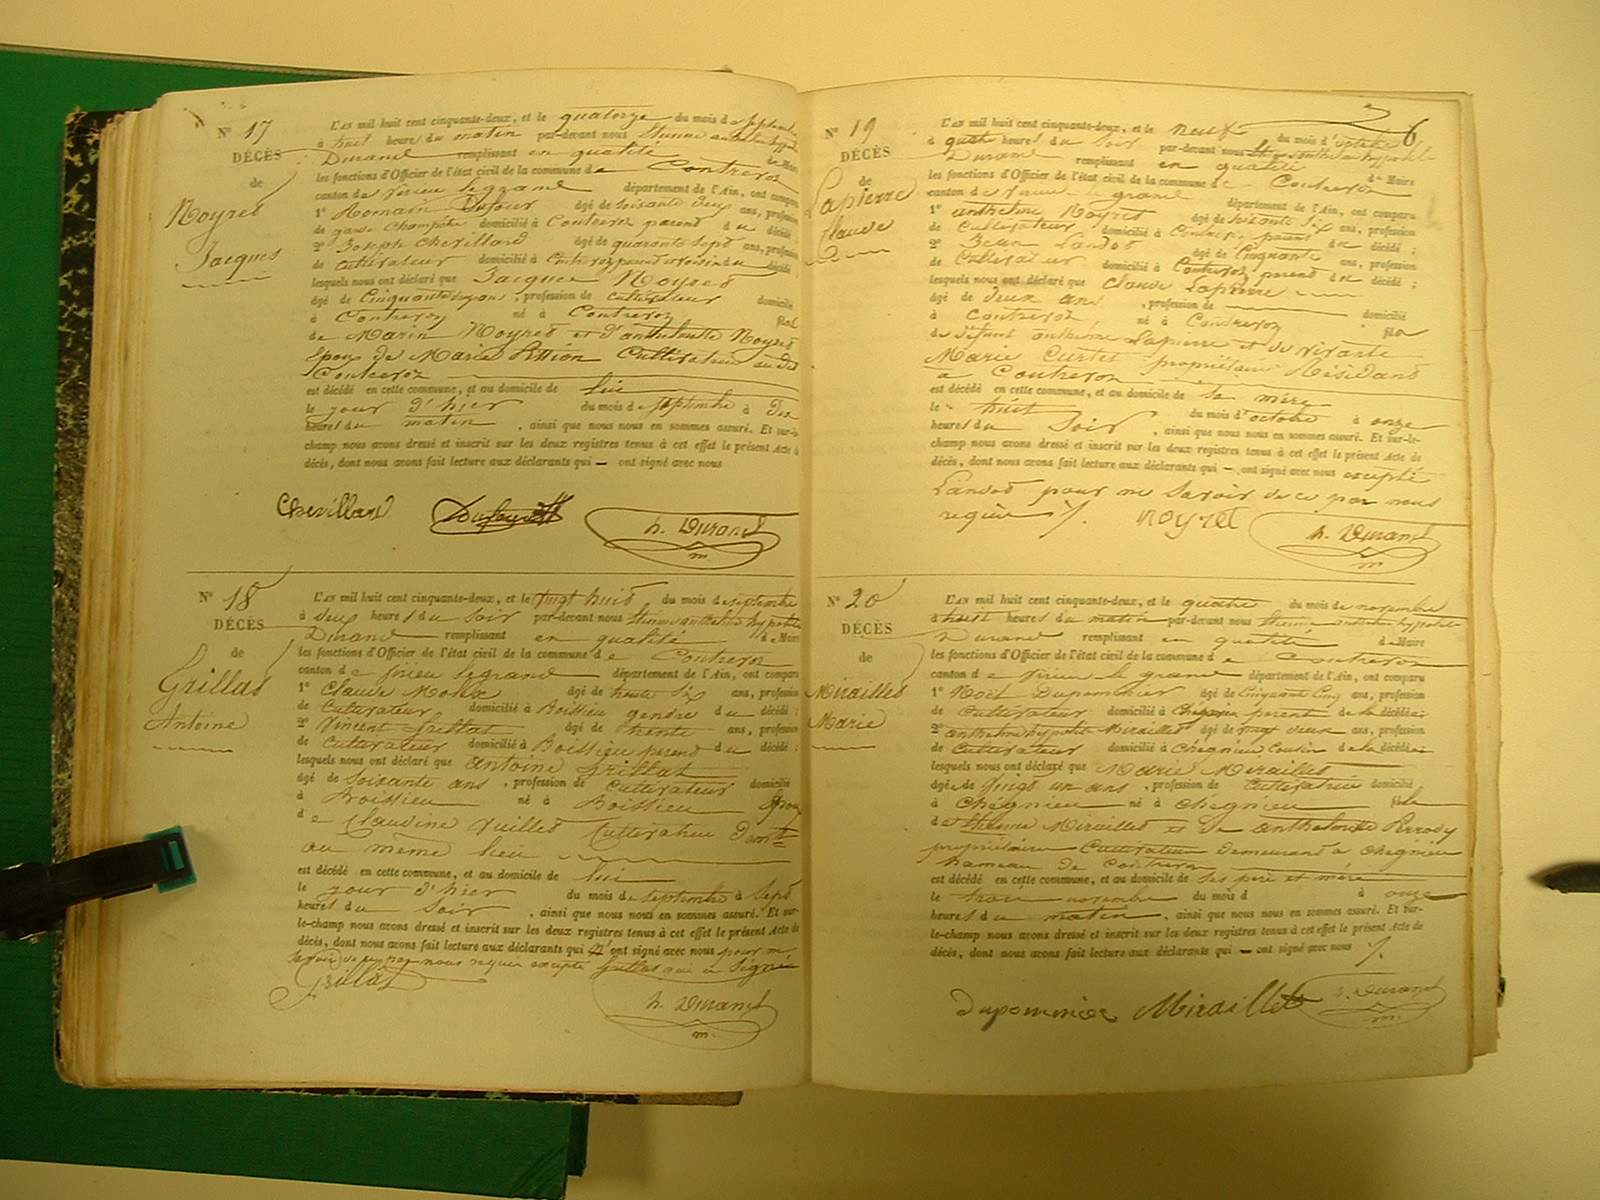 N° 17
DÉCÈS
de
Noyret
Jacques
L'AN mil huit cent cinquante-deux, et le quatorze du mois de septembre
à huit heures du matin par-devant nous Etienne anthelme hypolite
Durand remplissant en qualité de Maire
les fonctions d'Officier de l'état civil de la commune de Contrevoz
canton de Virieu legrand département de l'Ain, ont comparu
1° Romain Dufour âgé de soixante deux ans, profession
de garde champêtre domicilié à Contrevoz parent du décédé ;
2° Joseph Chevillard âgé de quarante sept ans, profession
de cultivateur domicilié à Contrevoz parent et voisin du décédé
lesquels nous ont déclaré que Jacques Noyret
âgé de Cinquante ans, profession de cultivateur domicilié
à Contrevoz né à Contrevoz fils
de Marin Noyret et d'anthelmette Noyret
Epoux de Marie Cultivateur au dit
Contrevoz
est décédé en cette commune, et au domicile de lui
le jour d'hier du mois de septembre à Dix
heures du matin, ainsi que nous nous en sommes assuré. Et sur-le-
champ nous avons dressé et inscrit sur les deux registres tenus à cet effet le présent Acte de
décès, dont nous avons fait lecture aux déclarants qui — ont signé avec nous
Chevillard h. Durand
N° 18
DÉCÈS
de
Grillat
Antoine
L'AN mil huit cent cinquante-deux, et le vingt huit du mois de septembre
à deux heures du soir par-devant nous Etienne anthelme hypolite
Durand remplissant en qualité de Maire
les fonctions d'Officier de l'état civil de la commune de Contrevoz
canton de Virieu legrand département de l'Ain, ont comparu
1° Claude âgé de trente six ans, profession
de Cultivateur domicilié à Boissieu gendre du décédé ;
2° Vincent Grillat âgé de trente ans, profession
de Cultivateur domicilié à Boissieu parent du décédé ;
lesquels nous ont déclaré que antoine Grillat
âgé de soixante ans, profession de Cultivateur domicilié
à Boissieu né à Boissieu Epoux
de Claudine Vuillet Cultivateur Domt
au même lieu
est décédé en cette commune, et au domicile de lui
le jour d'hier du mois de septembre à Sept
heures du soir, ainsi que nous nous en sommes assuré. Et sur-
le-champ nous avons dressé et inscrit sur les deux registres tenus à cet effet le présent Acte de
décès, dont nous avons fait lecture aux déclarants qui n'ont signé avec nous pour ne
savoir de ce par nous requis excepté Grillat qui a signé
Grillat h. Durand
6
N° 19
DÉCÈS
de
Lapierre
Claude
L'AN mil huit cent cinquante-deux, et le neuf du mois d'octobre
à quatre heures du soir par-devant nous Etienne anthelme hypolite
Durand remplissant en qualité de Maire
les fonctions d'Officier de l'état civil de la commune de Contrevoz
canton de Virieu-le-grand département de l'Ain, ont comparu
1° anthelme Noyret âgé de soixante six ans, profession
de Cultivateur domicilié à Contrevoz parent du décédé ;
2° Jean Landot âgé de Cinquante ans, profession
de Cultivateur domicilié à Contrevoz parent du décédé ;
lesquels nous ont déclaré que Claude Lapierre
âgé de deux ans, profession de domicilié
à Contrevoz né à Contrevoz fils
de défunt anthelme Lapierre et de vivante
Marie Curtet propriétaire Résidant
à Contrevoz
est décédé en cette commune, et au domicile de sa mère
le huit du mois d'octobre à onze
heures du Soir, ainsi que nous nous en sommes assuré. Et sur-le-
champ nous avons dressé et inscrit sur les deux registres tenus à cet effet le présent Acte de
décès, dont nous avons fait lecture aux déclarants qui — ont signé avec nous excepté
Landot pour ne savoir de ce par nous
requis Noyret h. Durand
N° 20
DÉCÈS
de
Miraillet
Marie
L'AN mil huit cent cinquante-deux, et le quatre du mois de novembre
à huit heures du matin par-devant nous Etienne anthelme hypolite
Durand remplissant en qualité de Maire
les fonctions d'Officier de l'état civil de la commune de Contrevoz
canton de Virieu-le-grand département de l'Ain, ont comparu
1° Noël Dupommier âgé de Cinquante Cinq ans, profession
de Cultivateur domicilié à Chegnieu parent de la décédée
2° anthelme hypolite Miraillet âgé de vingt deux ans, profession
de Cultivateur domicilié à Chegnieu Cousin de la décédée
lesquels nous ont déclaré que Marie Miraillet
âgée de Vingt un ans, profession de Cultivatrice domicilié
à Chegnieu né à Chegnieu fille
de Etienne Miraillet et de anthelmette Perrody
propriétaires Cultivateurs demeurant à Chegnieu
hameau de Contrevoz
est décédé en cette commune, et au domicile de ses père et mère
le trois novembre du mois d à onze
heures du matin, ainsi que nous nous en sommes assuré. Et sur-
le-champ nous avons dressé et inscrit sur les deux registres tenus à cet effet le présent Acte de
décès, dont nous avons fait lecture aux déclarants qui — ont signé avec nous
Dupommier Miraillet h. Durand